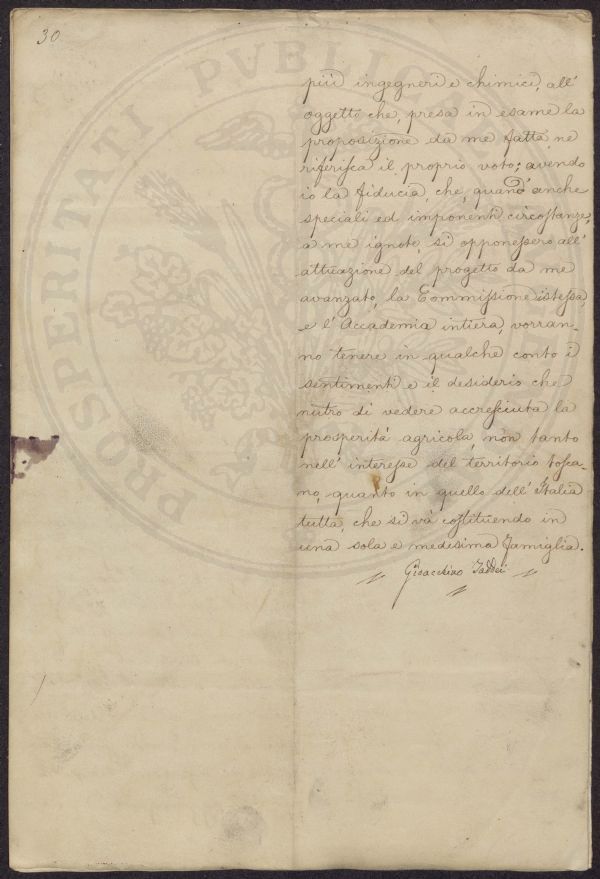 30
PROSPERITATI PVBLICAE
più ingegneri e chimici, all'
oggetto che, presa in esame la
proposizione da me fatta, ne
riferisca il proprio voto; avendo
io la fiducia, che, quand'anche
speciali ed imponenti circostanze,
a me ignote, si opponessero all'
attuazione del progetto da me
avanzato, la Commissione istessa,
e l'Accademia intiera, vorran-
no tenere in qualche conto i
sentimenti e il desiderio che
nutro di vedere accresciuta la
prosperità agricola, non tanto
nell'interesse del territorio tosca-
no, quanto in quello dell'Italia
tutta, che si và costituendo in
una sola e medesima famiglia.
Gioacchino Taddei